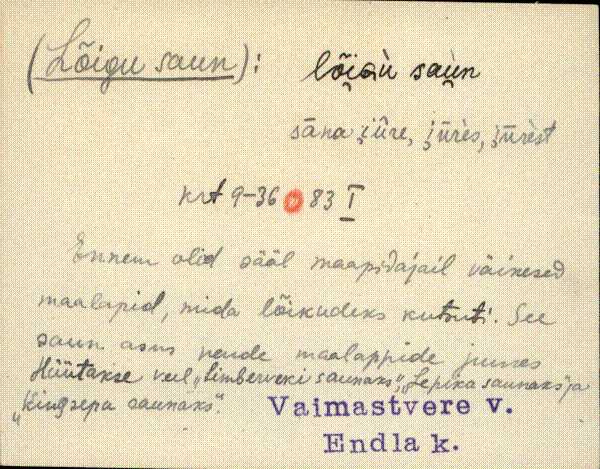 (Lõigu saun): lõi̯gù sau̯n
sāna jǖre, jǖrès, jǖrèst
krt 9-36 83 I
Ennem olid sääl maapidajail väikesed
maalapid, mida lõikudeks kutsuti. See
saun asus nende maalappide juures
Hüütakse veel „Limberveki saunaks", „Lepika saunaks" ja
„Kingsepa saunaks".
Vaimastvere v.
Endla k.